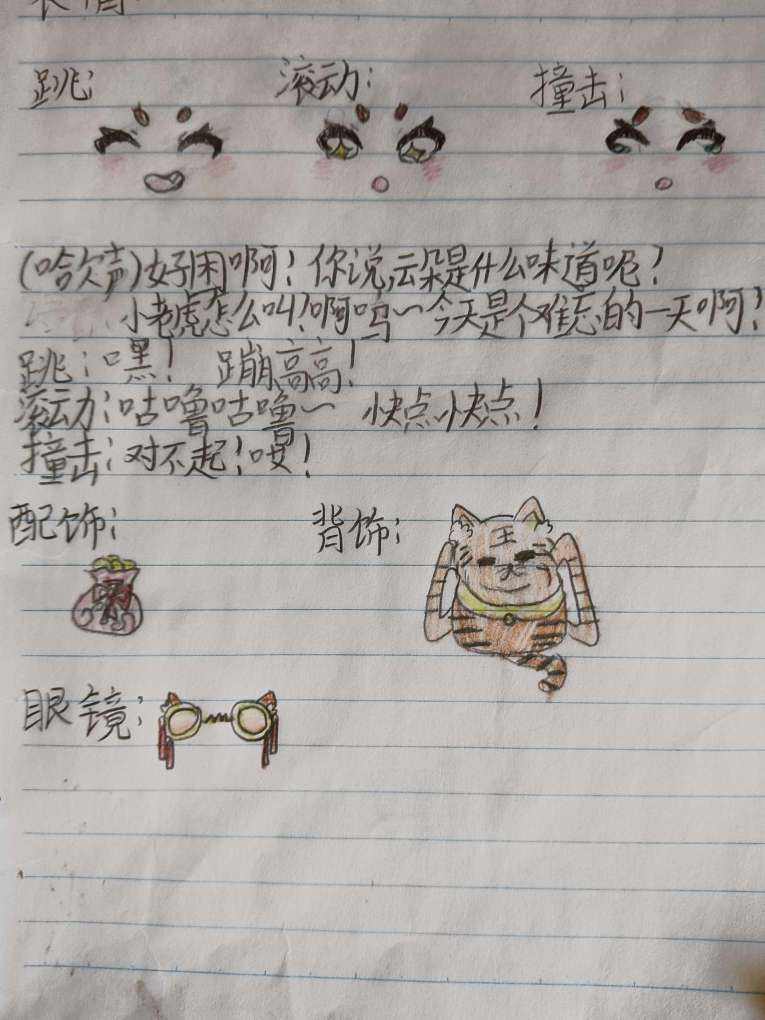 表情
跳： 滚动： 撞击：
(哈欠声)好困啊！你说,云朵是什么味道呢？
小老虎怎么叫？啊呜~今天是个难忘的一天啊？
跳：嘿！ 蹦高高！
滚动：咕噜咕噜~ 快点快点！
撞击：对不起！哎！
配饰： 背饰：
王
眼镜：